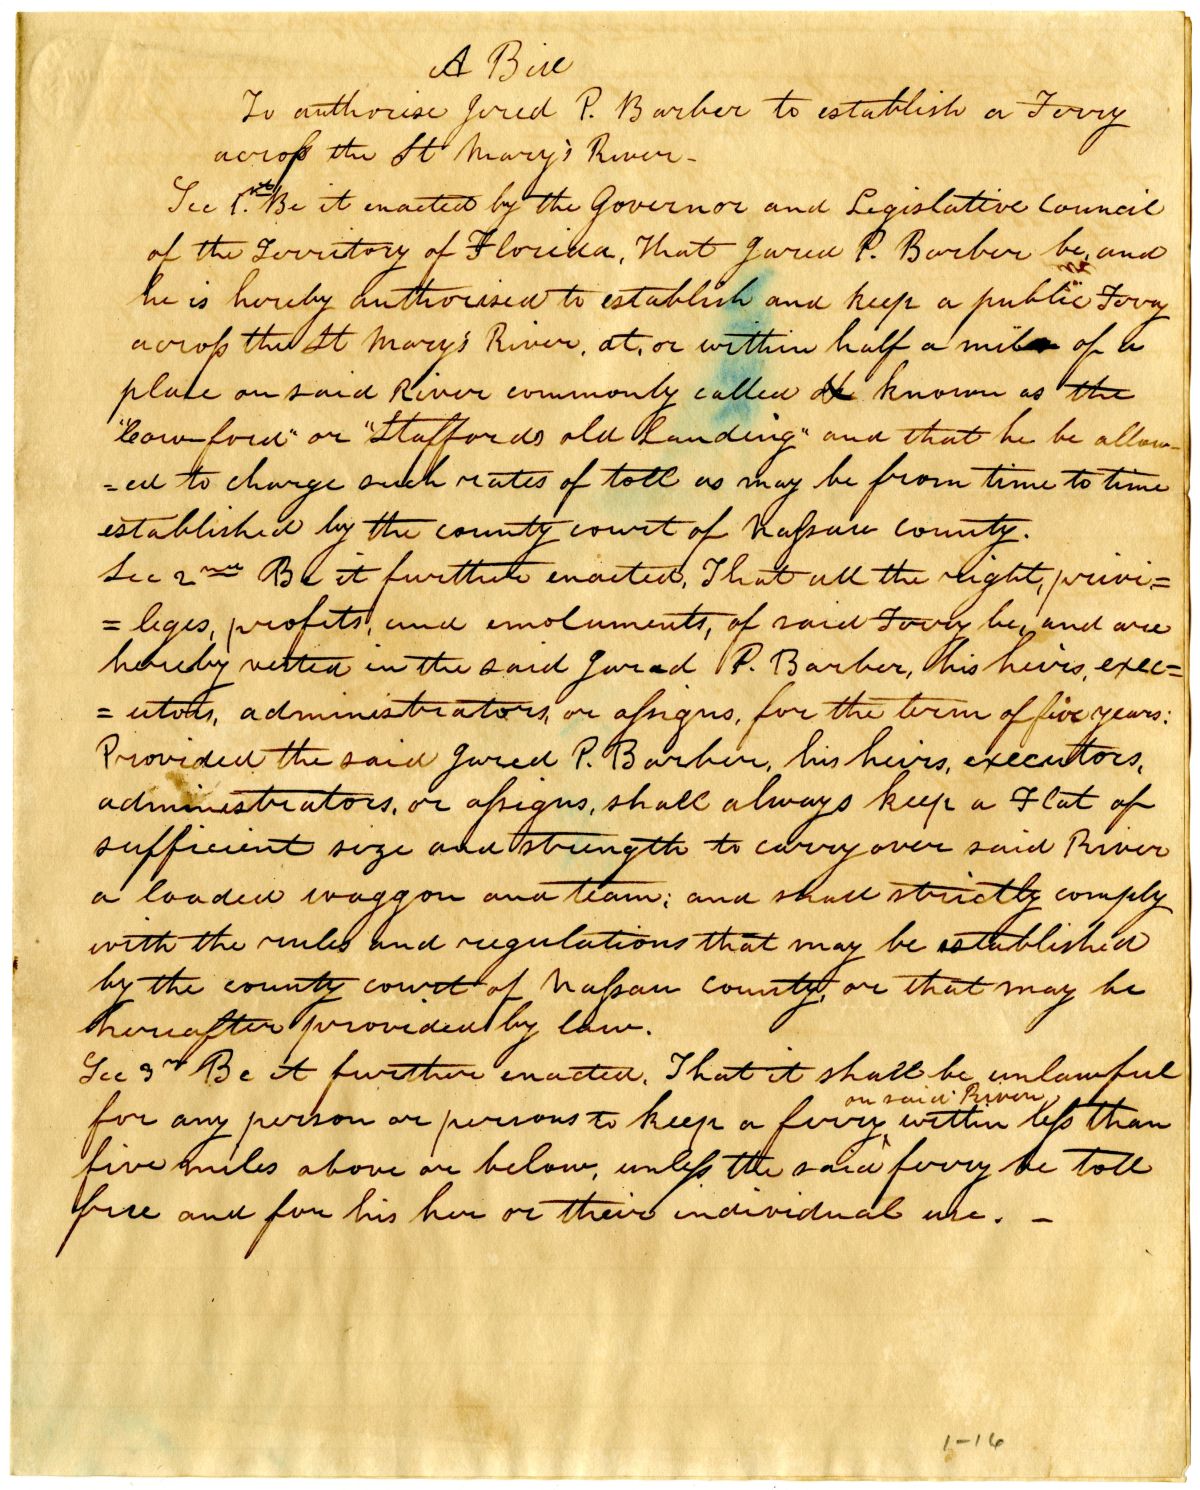 A Bill
To authorise Jared P. Barber to establish a Ferry
across the St Mary's River-
Sec 1st. Be it enacted by the Governor and Legislative Council
of the Territory of Florida, That Jared P. Barber be, and
he is hereby authorised to establish and keep a public Ferry
across the St Mary's River, at, or within half a mile of a
place on said River commonly called & known as the
"Cow-ford" or "Staffords old Landing" and that he be allow-
=ed to charge such rates of toll as may be from time to time
established by the county court of Nassau County.
Sec 2nd Be it further enacted, That all the right, privi=
=leges, profits, and emoluments, of said Ferry be, and are
hereby vested in the said Jared P. Barber, his heirs, exec=
=utors, administrators, or assigns, for the term of five years:
Provided the said Jared P. Barber, his heirs, executors,
administrators, or assigns, shall always keep a Flat of
sufficient size and strength to carry over said River
a loaded waggon and team; and shall strictly comply
with the rules and regulations that may be established
by the county court of Nassau County, or that may be
hereafter provided by law.
Sec 3rd Be it further enacted, That it shall be unlawful
on said River
for any person or persons to keep a ferry within less than
five miles above or below, unless the said ferry be toll
free and for his her or their individual use. -
1-16